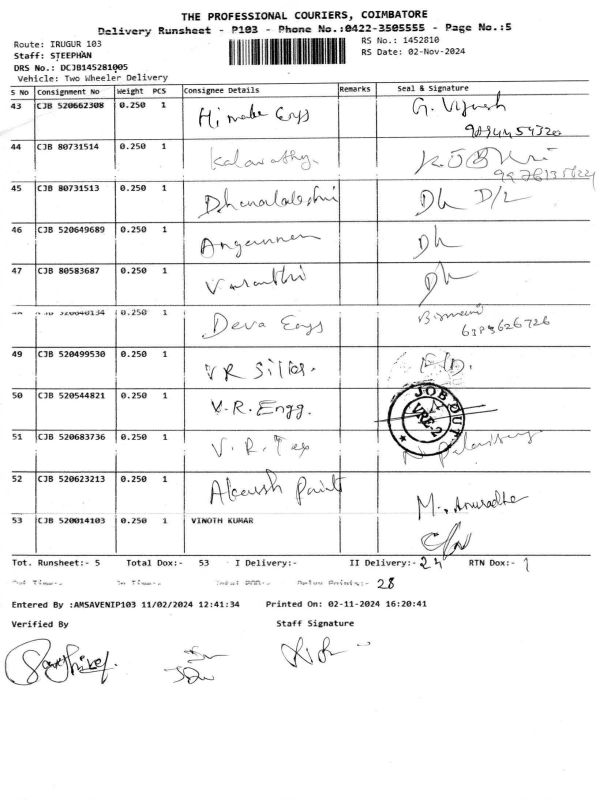 THE PROFESSIONAL COURIERS, COIMBATORE
Delivery Runsheet - P103 - Phone No.:0422-3505555 - Page No.:5
Route: IRUGUR 103 RS No.: 1452810
Staff: STEEPHAN RS Date: 02-Nov-2024
DRS No.: DCJB145281005
Vehicle: Two Wheeler Delivery
S No Consignment No Weight PCS Consignee Details Remarks Seal & Signature
43 CJB 520662308 0.250 1 Engs G. Vignesh
44 CJB 80731514 0.250 1 Kalavathy.
45 CJB 80731513 0.250 1 Dhanalakshmi Dh D/L
46 CJB 520649689 0.250 1 Dh
47 CJB 80583687 0.250 1 Vasanthi Dh
0.250 1 Deva Engs
6383626726
49 CJB 520499530 0.250 1 VR
50 CJB 520544821 0.250 1 V.R.Engg. JOB OUT VRE-2
51 CJB 520683736 0.250 1 V.R.Tex
52 CJB 520623213 0.250 1 Akaush Paint M. Anuradha
53 CJB 520014103 0.250 1 VINOTH KUMAR
Tot. Runsheet:- 5 Total Dox:- 53 I Delivery:- II Delivery:- RTN Dox:- 1
Out Time:- In Time:- Total POD:- Delay Points:- 28
Entered By :AMSAVENIP103 11/02/2024 12:41:34 Printed On: 02-11-2024 16:20:41
Verified By Staff Signature